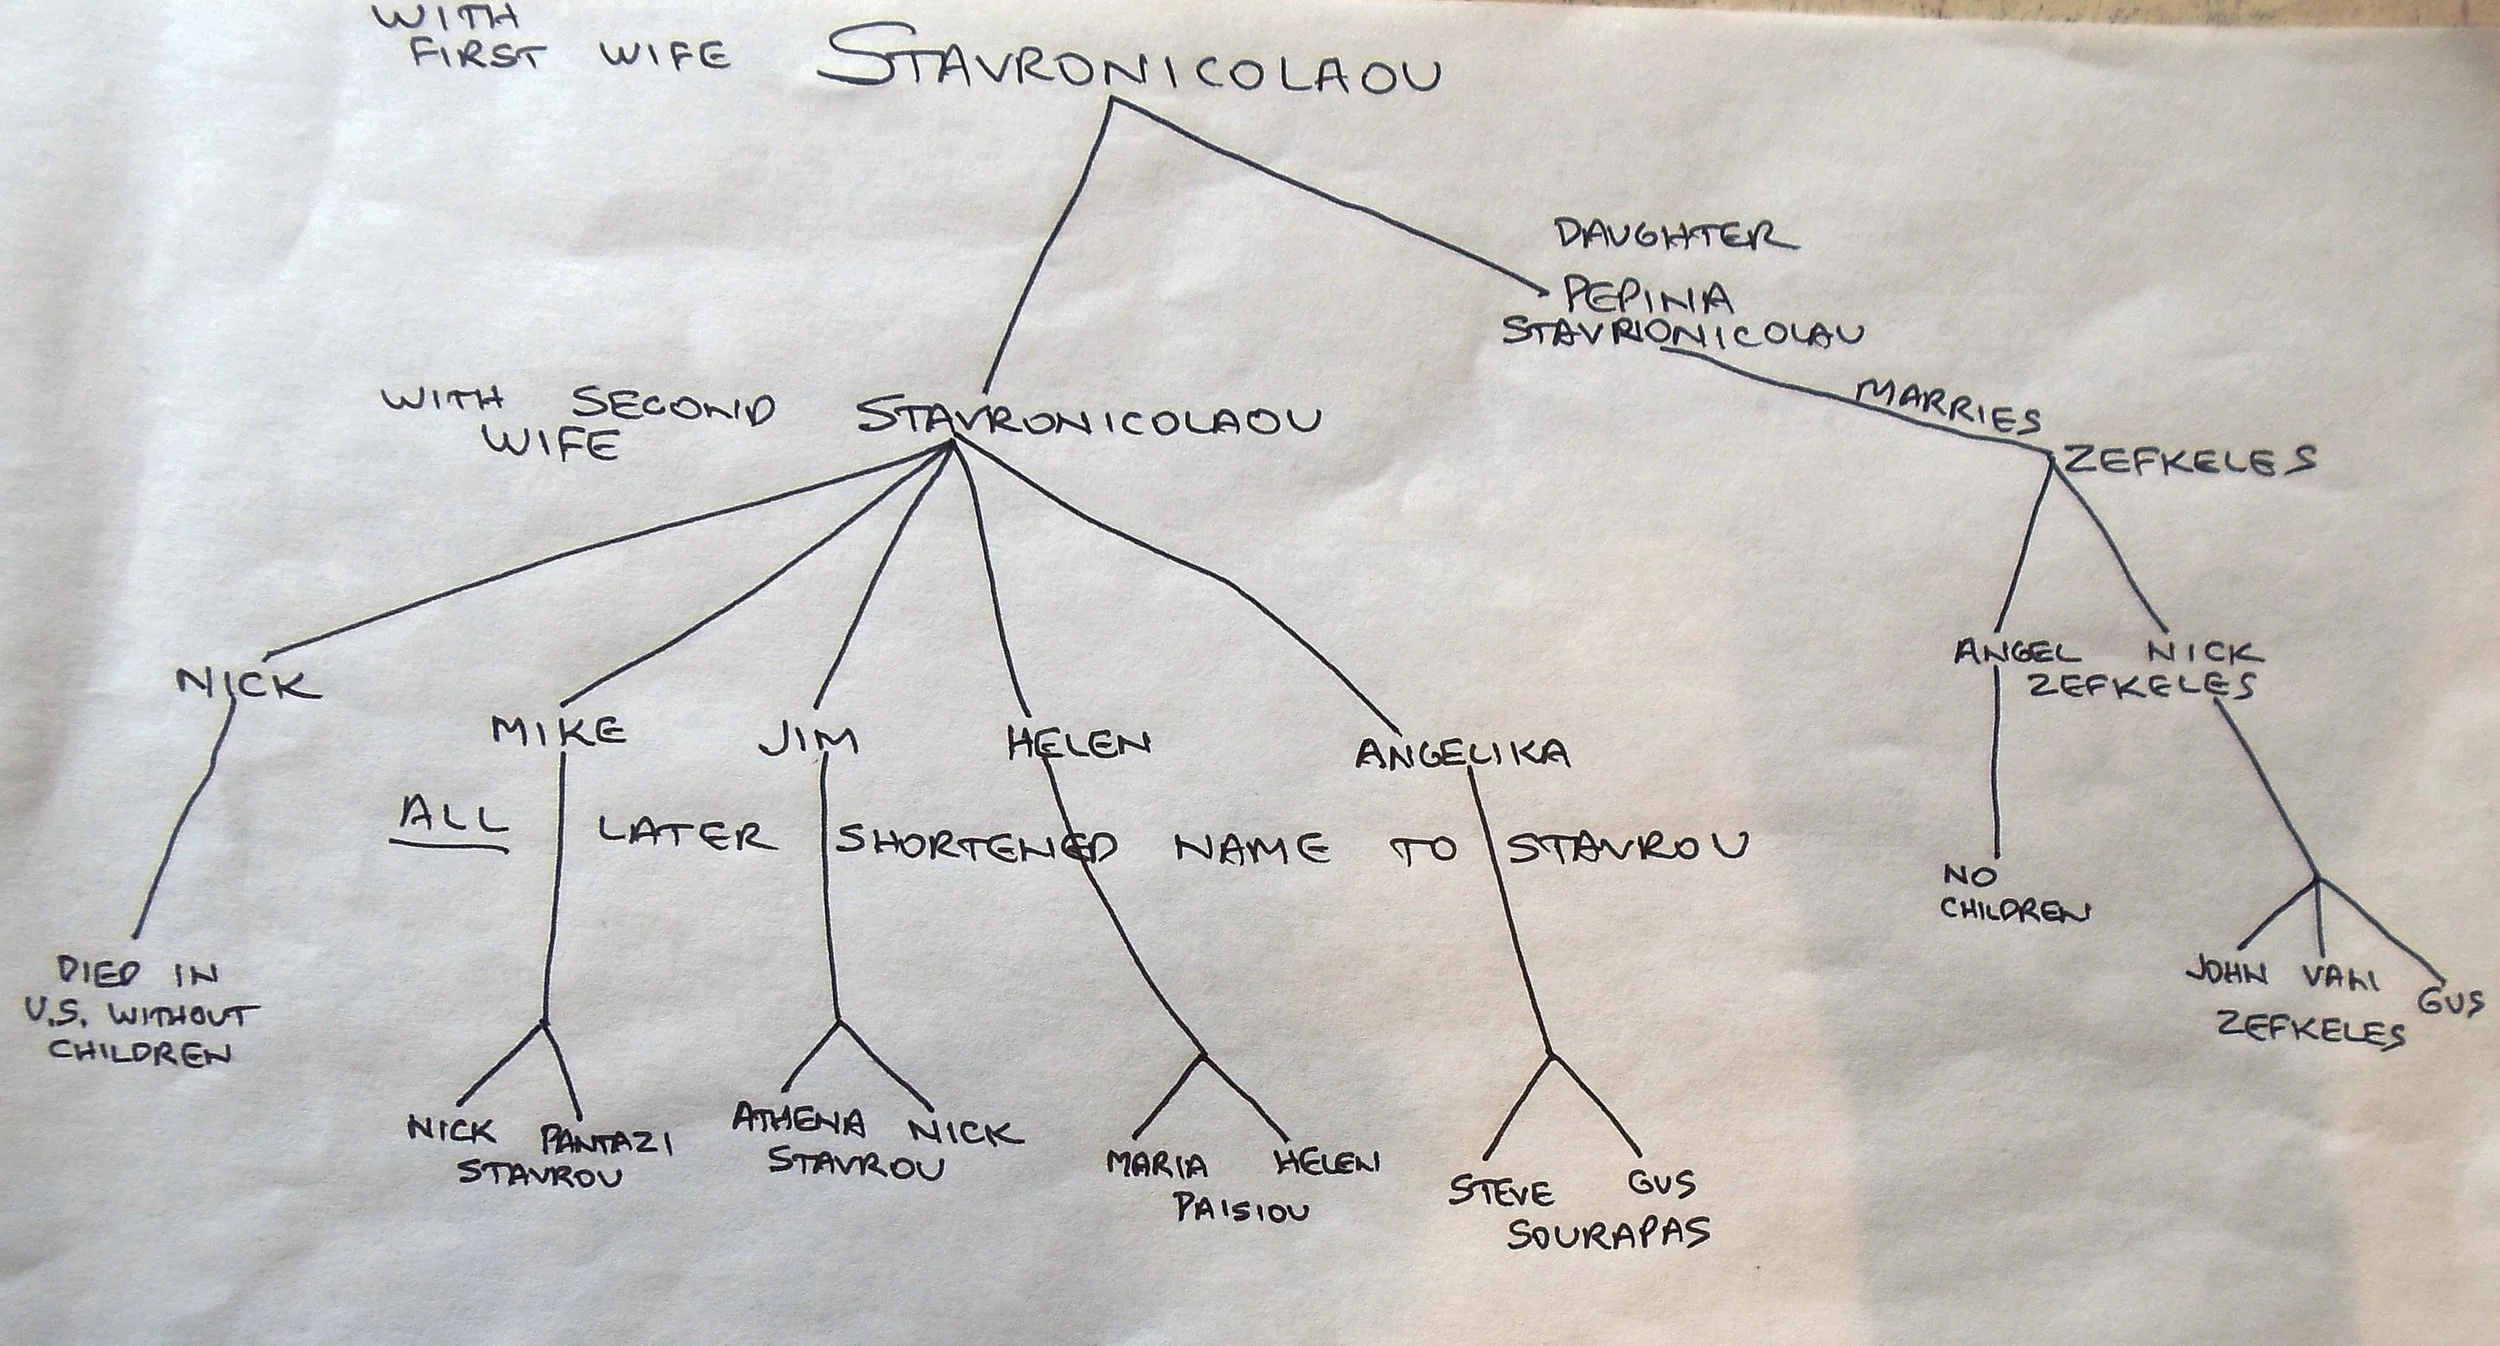 WITH
FIRST WIFE STAVRONICOLAOU
DAUGHTER
PEPINA
STAVRIONICOLAU
MARRIES
ZEFKELES
WITH SECOND STAVRONICOLAOU
WIFE
NICK
MIKE
JIM
HELEN
ANGELIKA
ANGEL NICK
ZEFKELES
ALL LATER SHORTENED NAME TO STAVROU
NO
CHILDREN
JOHN VANI GUS
ZEFKELES
DIED IN
U.S. WITHOUT
CHILDREN
NICK PANTAZI
STAVROU
ATHENA NICK
STAVROU
MARIA HELEN
PAISIOU
STEVE GUS
SOURAPAS